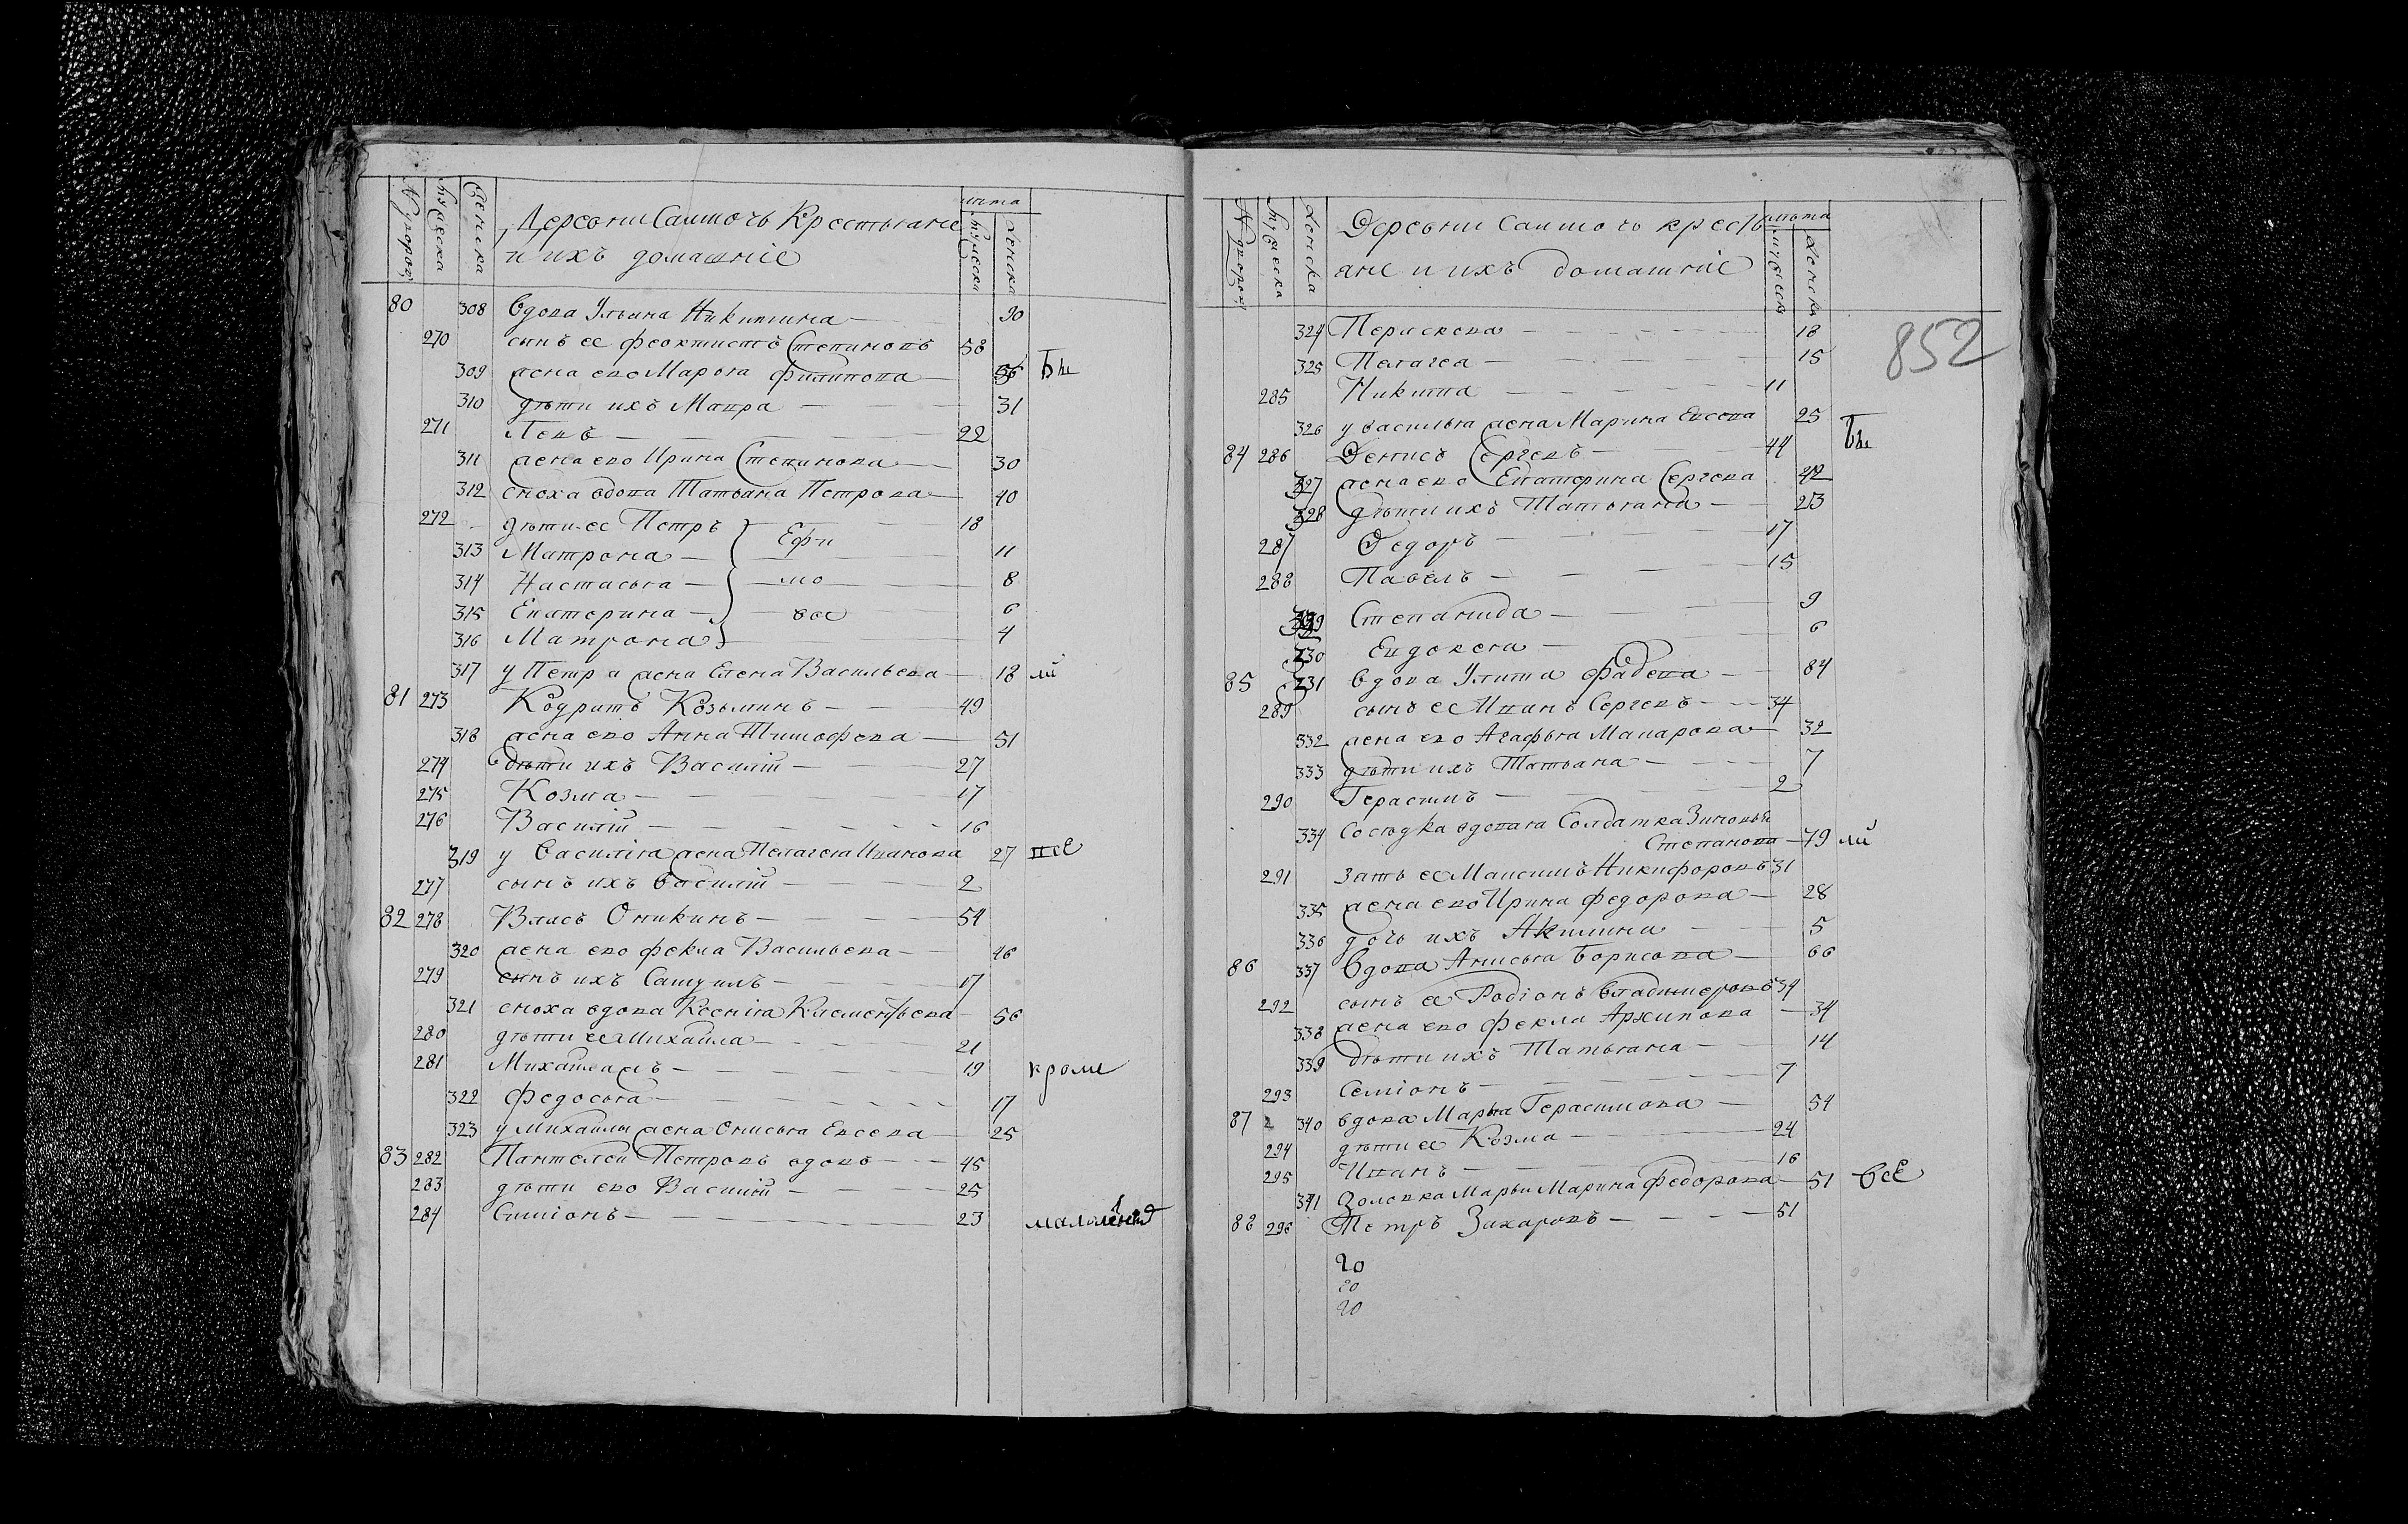 № дворовъ мужеска женска Деревни Салточъ Крестьяне лета
и ихъ домашніе мужеска женска
80 308 вдова Ульяна Никитина 90
270 сынъ ее Феоктистъ Степановъ 58
309 жена ево Марья Филипова 56 Бы
310 дѣти ихъ Мавра 31
271 Левъ 22
311 жена ево Ирина Степанова 30
312 сноха вдова Татьяна Петрова 40
272 дѣти ее Петръ 18
Ефи
313 Матрона 11
314 Настасья мо 8
315 Екатерина ва 6
316 Матрона 4
317 у Петра жена Елена Васильева 18 ли
81 273 Кодратъ Козьминъ 49
318 жена ево Анна Тимофева 51
274 дѣти ихъ Василій 27
275 Козма 17
276 Василій 16
319 у Василія жена Пелагея Иванова 27 все
277 сынъ ихъ Василій 2
82 278 Власъ Оникинъ 54
320 жена ево Фекла Васильева 46
279 сынъ ихъ Самуилъ 17
321 сноха вдова Ксенія Клементьева 56
280 дѣти ее Михайла 21
281 Михайла 19 кроме
322 Федосья 17
323 у Михайлы жена Онисья Евсева 25
83 282 Пантелей Петровъ вдовъ 45
283 дѣти ево Василій 25
284 Симіонъ 23
№ дворовъ мужеска женска Деревни Салточъ кресть лѣта
яне и ихъ домашніе мужеска женска
852
324 Перасковa 18
325 Пелагея 15
285 Никита 11
326 у Василья жена Марина Евсева 25 Бы
84 286 Денисъ Сергевъ 44
327 жена ево Екатерина Сергева 42
328 дѣти ихъ Татьяна 23
287 Федоръ 17
288 Павелъ 15
329 Степанида 9
330 Евдокея 6
85 331 вдова Улита Фадева 84
289 сынъ ее Иванъ Сергевъ 34
332 жена ево Агафья Макарова 32
333 дѣти ихъ Татьяна 7
290 Герасимъ 2
334 Соседка вдовая Солдатка Зиновья
Степанова 79 ли
291 Зять ее Максимъ Никифоровъ 31
335 жена ево Ирина Федорова 28
336 дочь ихъ Акилина 5
86 337 Вдова Анисья Борисова 66
292 сынъ ее Родіонъ Владимеровъ 34
338 жена ево Фекла Архипова 34
339 дѣти ихъ Татьяна 14
293 Семіонъ 7
87 2 340 вдова Марья Герасимова 54
294 дѣти ее Козма 24
295 Иванъ 16
341 Золовка Марьи Марина Федорова 51 все
88 296 Петръ Захаровъ 51
20
20
20